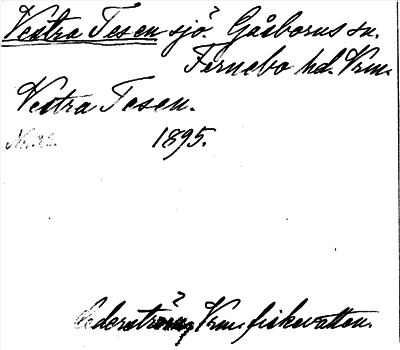 Vestra Tesen sjö? Gåsborns sn.
Fernebo hd. Vrm.
Vestra Tesen.
1895.
Cederström, Vrm. fiskevatten.